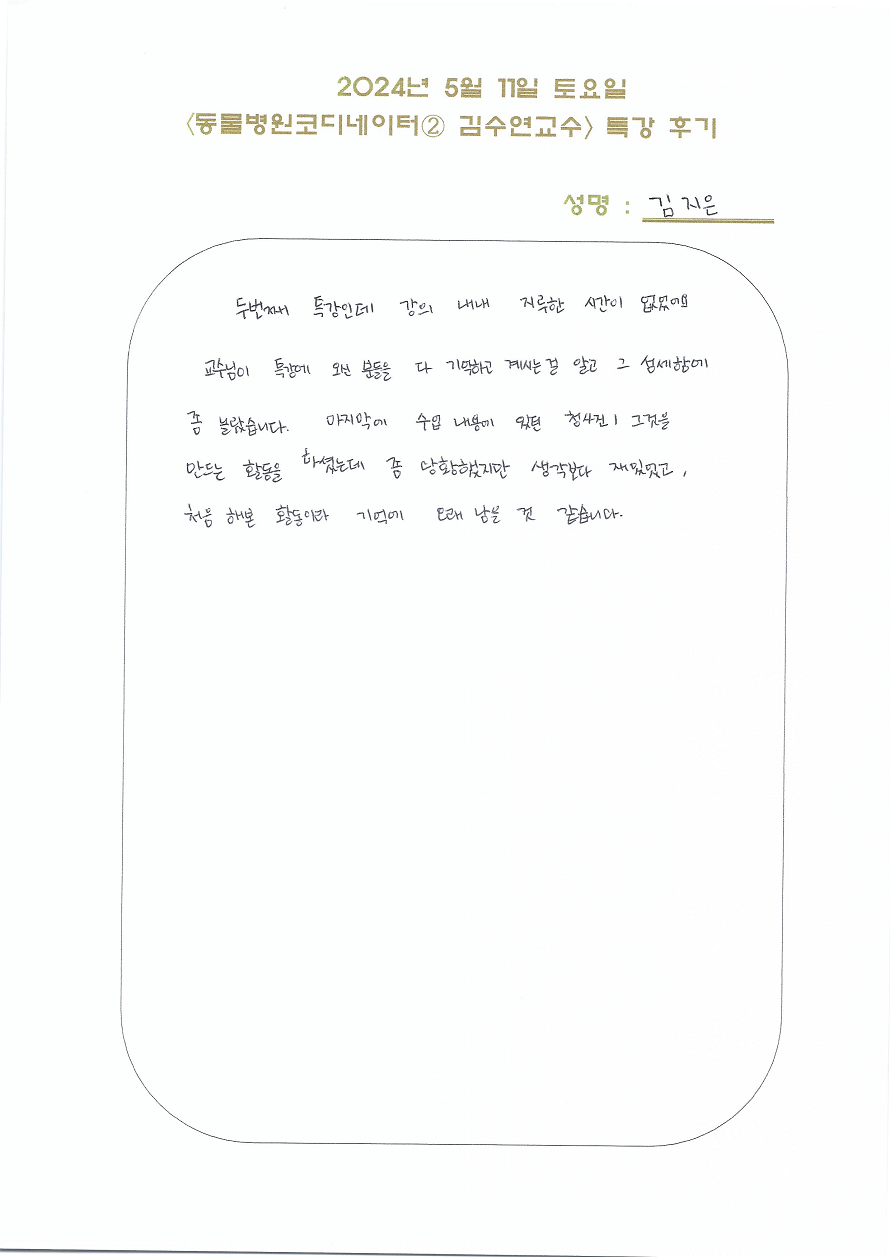 2024년 5월 11일 토요일
<동물병원코디네이터② 김수연교수> 특강 후기
성명 : 김지은
두번째 특강인데 강의 내내 지루한 시간이 없었어요
교수님이 특강에 오신 분들을 다 기억하고 계시는걸 알고 그 섬세함에
좀 놀랐습니다. 마지막에 수업 내용에 있던 청사진! 그것을
만드는 활동을 하셨는데 좀 당황했지만 생각보다 재밌었고,
처음 해본 활동이라 기억에 오래 남을 것 같습니다.